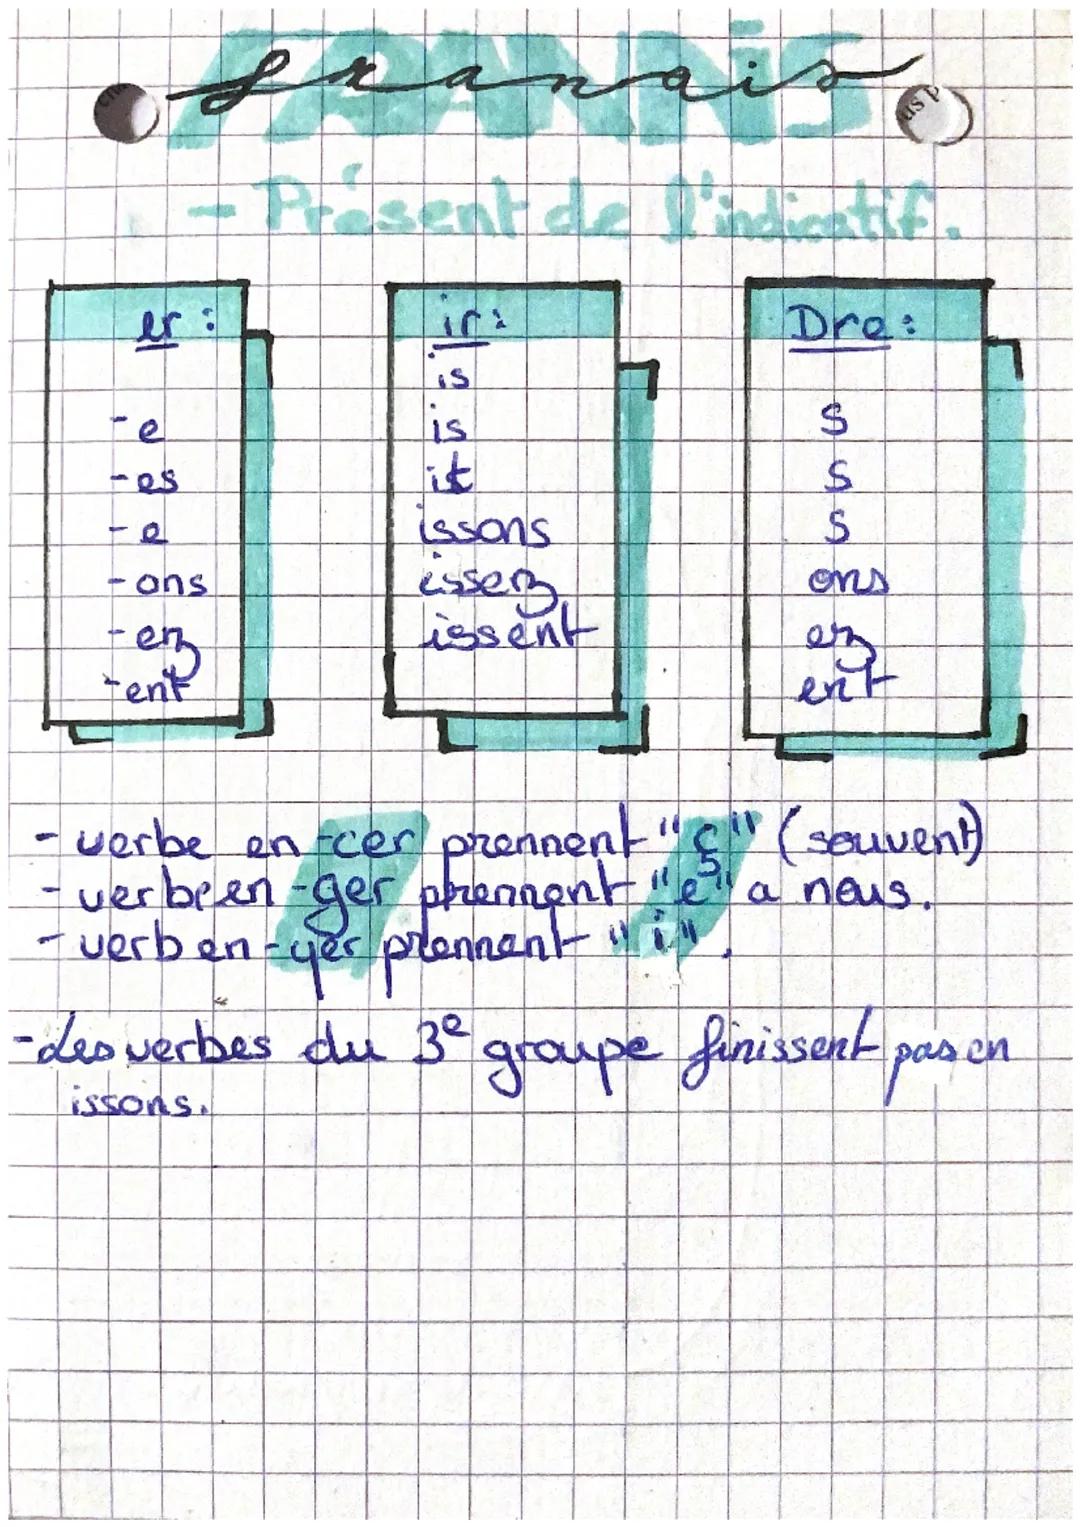 franais
FRANAIS
- Présent de l'indicatif.
er :
-e
-es
-e
-ons
-ez
-ent
ir :
is
is
it
issons
issez
issent
Dre :
s
s
s
ons
ez
ent
- verbe en -cer prennent "ç" (souvent)
- verbe en -ger prennent "e" a nous.
- verb en -yer prennent "i".
- Les verbes du 3e groupe finissent pas en
issons.